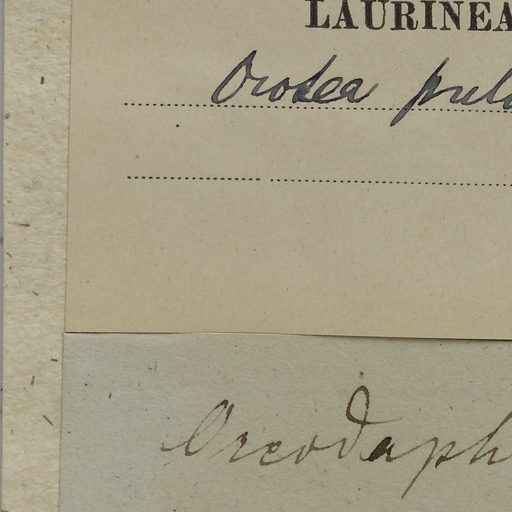 LAURINEA
Ocotea pul
Oreodaph